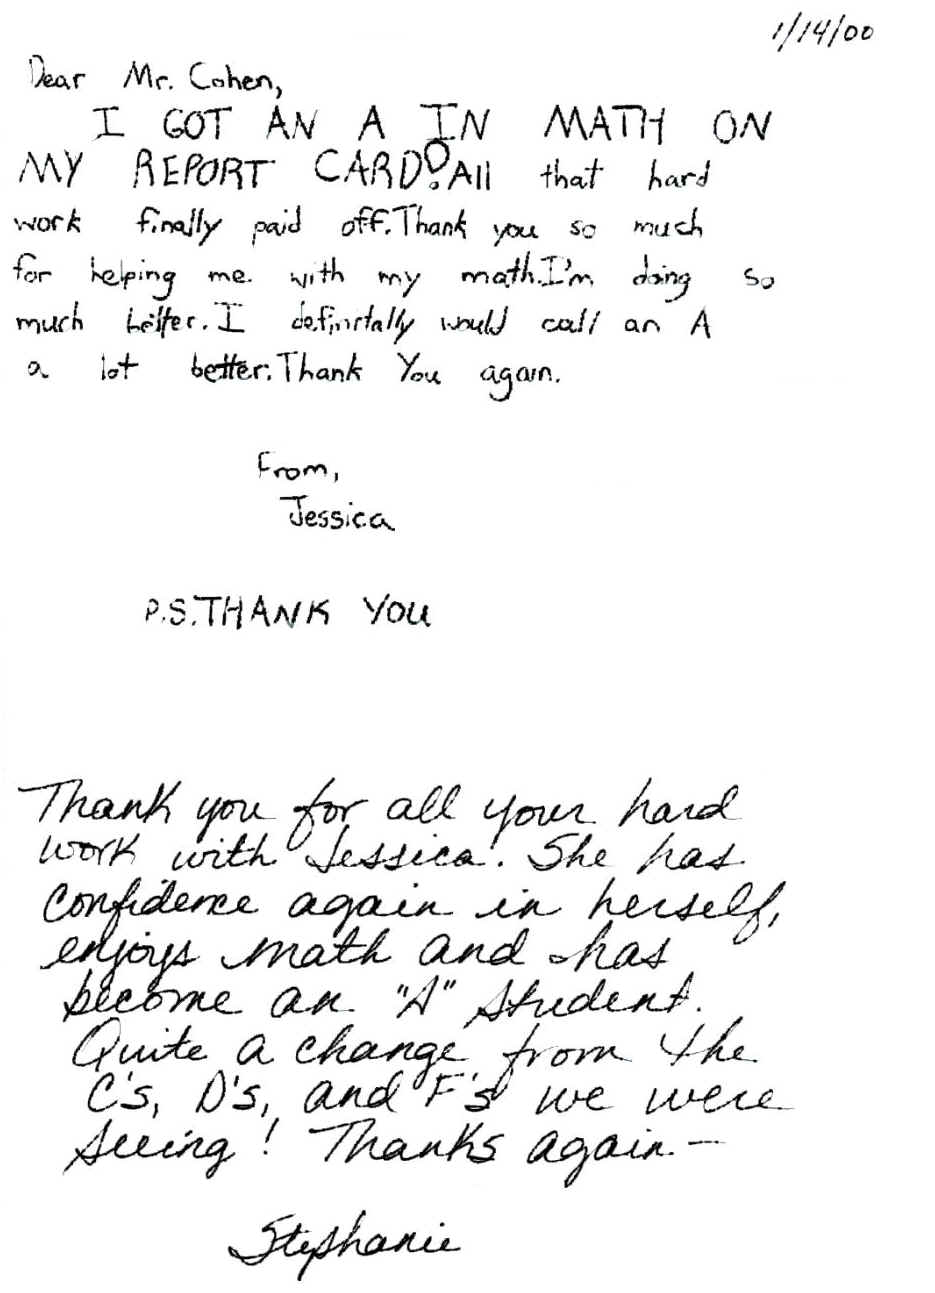 1/14/00
Dear Mr. Cohen,
I GOT AN A IN MATH ON
MY REPORT CARD! All that hard
work finally paid off. Thank you so much
for helping me with my math. I'm doing so
much better. I definitally would call an A
a lot better. Thank You again.
From,
Jessica
P.S. THANK YOU
Thank you for all your hard
work with Jessica! She has
confidence again in herself,
enjoys math and has
become an "A" student.
Quite a change from the
C's, D's, and F's we were
seeing! Thanks again —
Stephanie